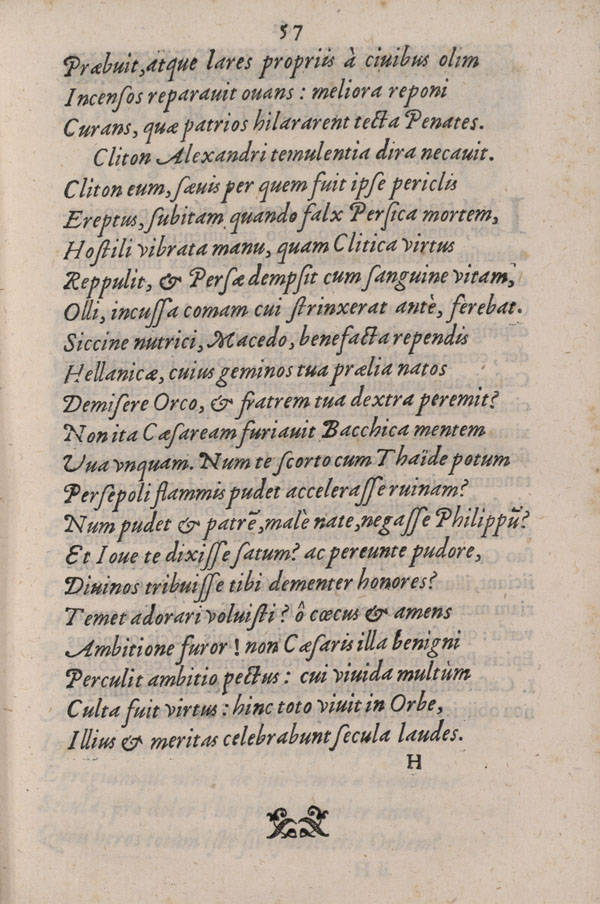 57
Præbuit, atque lares propriis à ciuibus olim
Incensos reparauit ouans : meliora reponi
Curans, quæ patrios hilararent tecta Penates.
Cliton Alexandri temulentia dira necauit.
Cliton eum, sæuis per quem fuit ipse periclis
Ereptus, subitam quando falx Persica mortem,
Hostili vibrata manu, quam Clitica virtus
Reppulit, & Persæ dempsit cum sanguine vitam,
Olli, incussa comam cui strinxerat antè, ferebat.
Siccine nutrici, Macedo, benefacta rependis
Hellanicæ, cuius geminos tua prælia natos
Demisere Orco, & fratrem tua dextra peremit?
Non ita Cæsaream furiauit Bacchica mentem
Vua vnquam. Num te scorto cum Thaïde potum
Persepoli flammis pudet accelerasse ruinam?
Num pudet & patrē, malè nate, negasse Philippū?
Et Ioue te dixisse satum? ac pereunte pudore,
Diuinos tribuisse tibi dementer honores?
Temet adorari voluisti? ô cœcus & amens
Ambitione furor ! non Cæsaris illa benigni
Perculit ambitio pectus : cui viuida multùm
Culta fuit virtus : hinc toto viuit in Orbe,
Illius & meritas celebrabunt secula laudes.
H